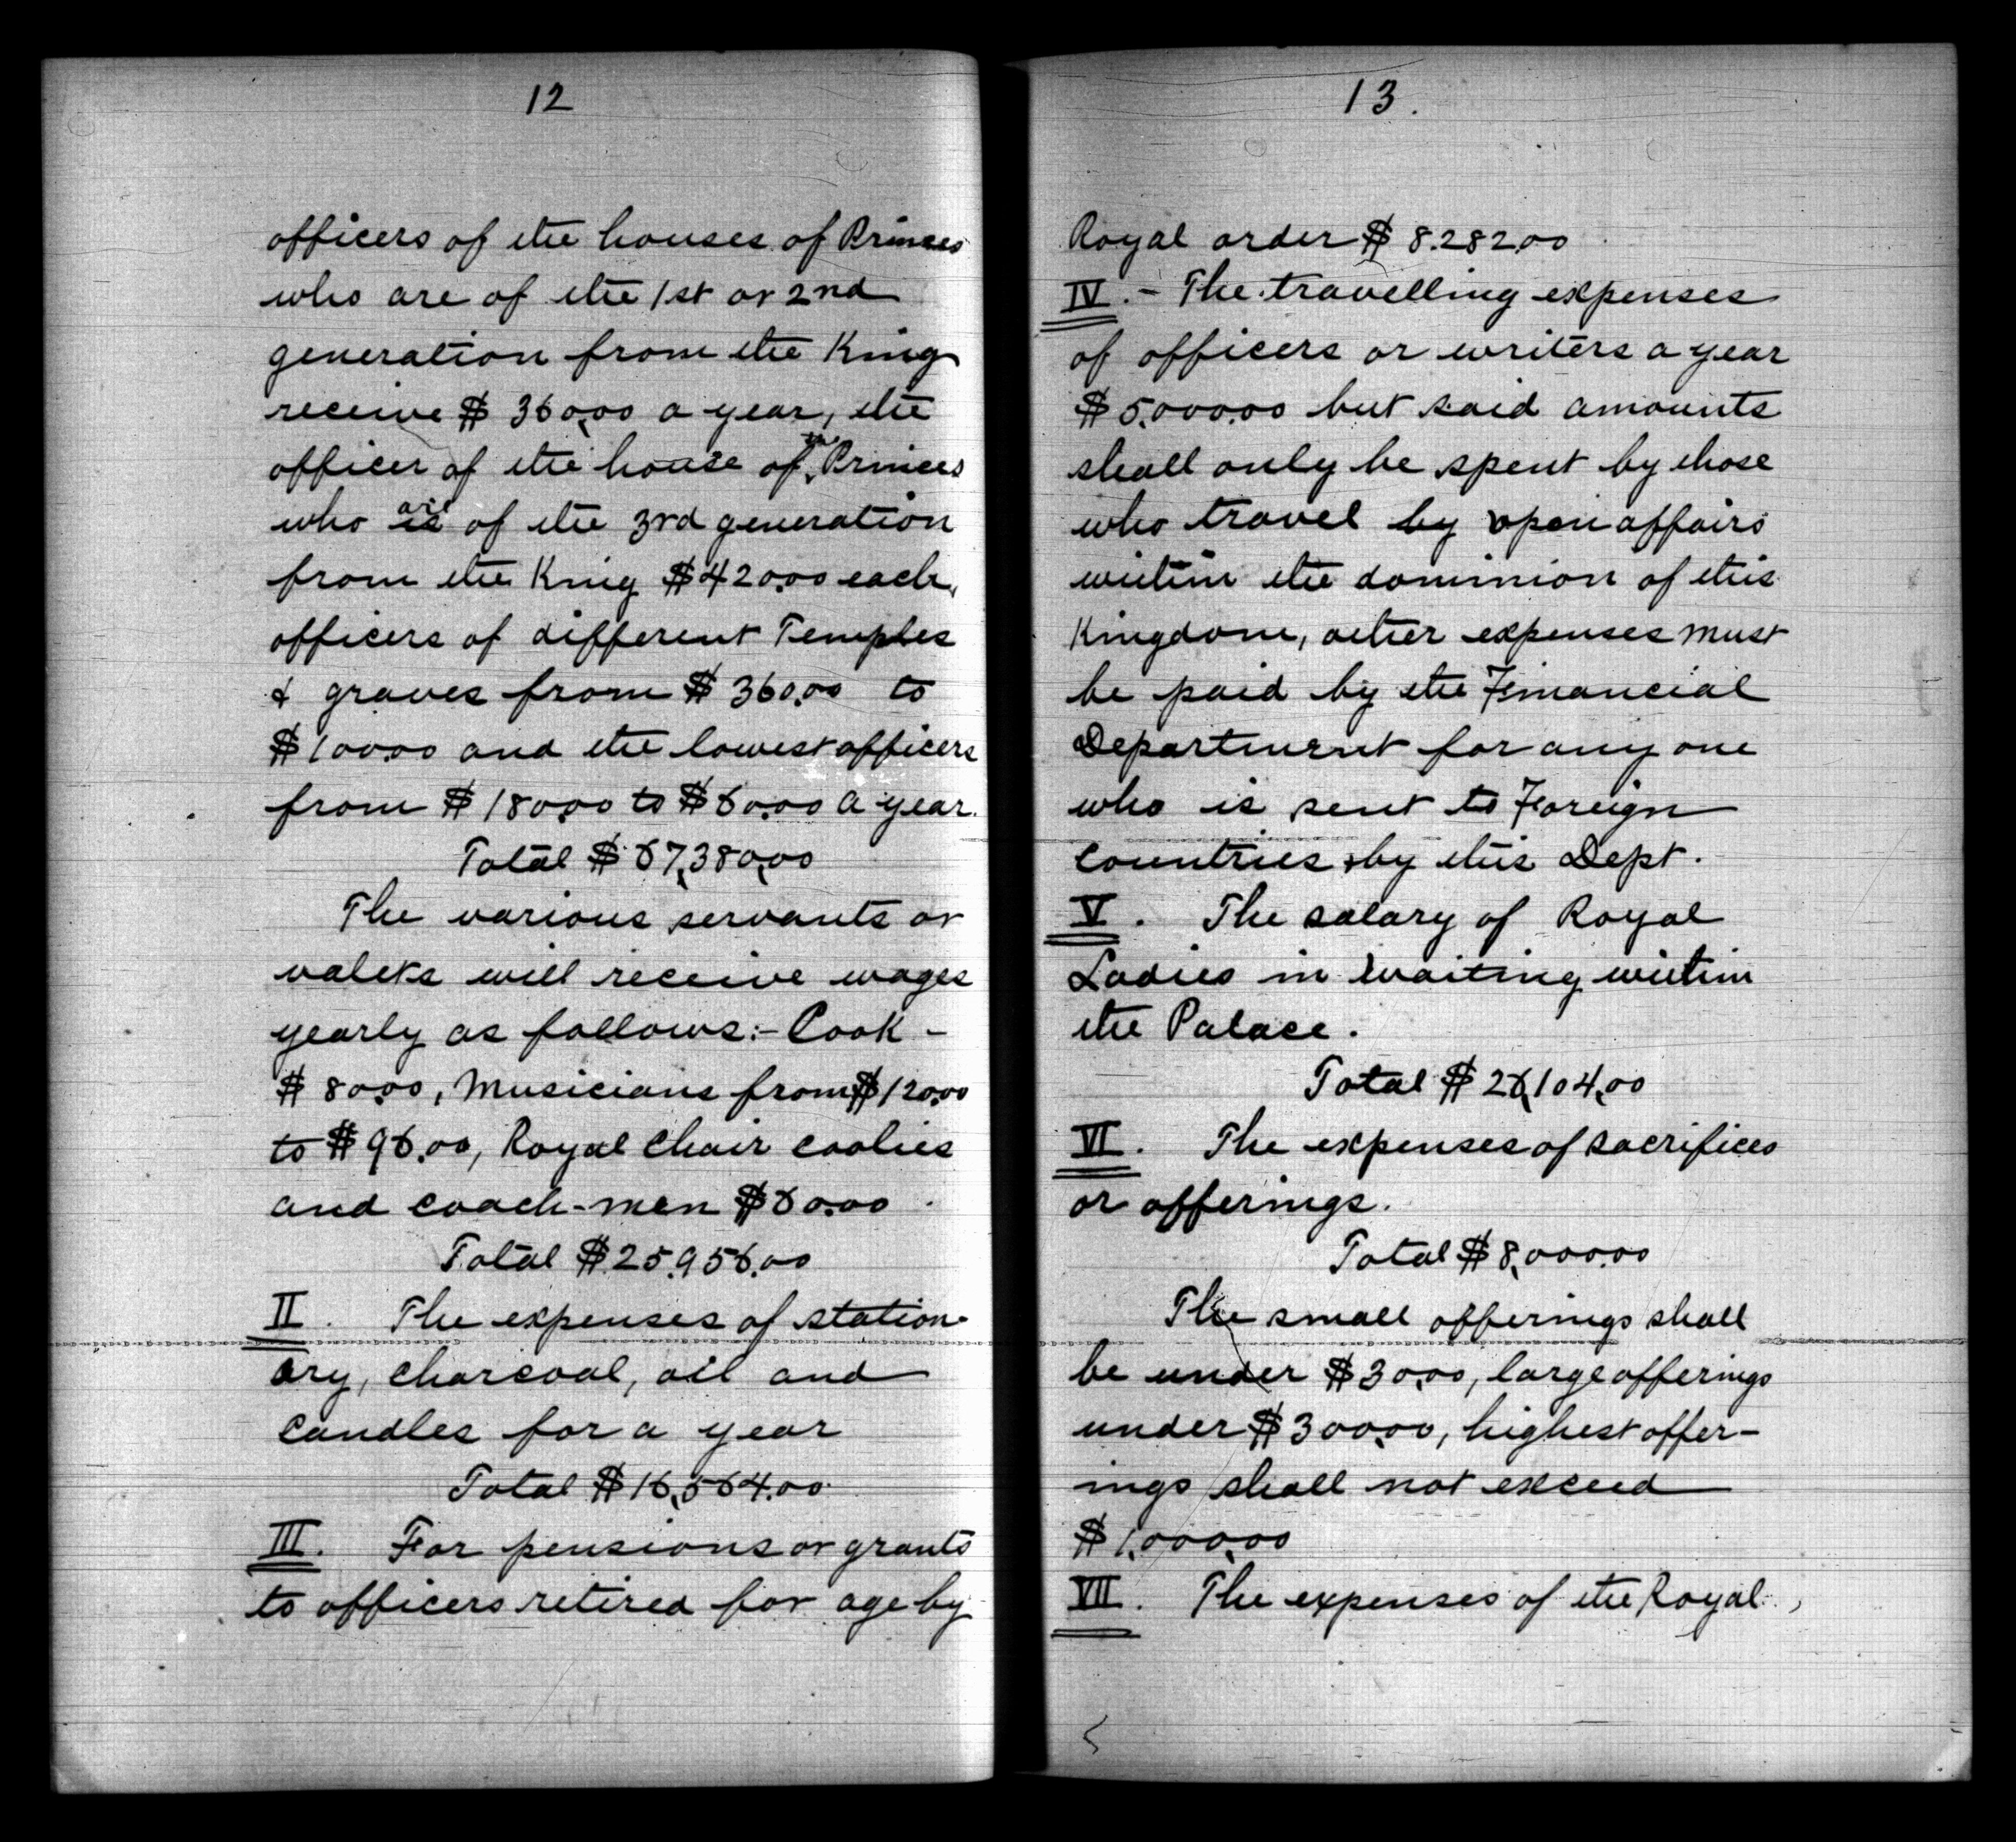 12
officers of the houses of Princes
who are of the 1st or 2nd
generation from the King
receive $ 360.00 a year, the
officer of the house of the Princes
who are of the 3rd generation
from the King $420.00 each,
officers of different Temples
& graves from $ 360.00 to
$100.00 and the lowest officers
from $ 180.00 to $60.00 a year.
Total $ 67,380.00
The various servants or
valets will receive wages
yearly as follows:- Cook -
$ 80.00, Musicians from $120.00
to $96.00, Royal Chair coolies
and coach-men $60.00.
Total $25,956.00
II. The expenses of station-
ary, charcoal, oil and
candles for a year
Total $16,564.00
III. For pensions or grants
to officers retired for age by
13.
Royal order $ 8.282.00
IV. - The travelling expenses
of officers or writers a year
$5,000.00 but said amounts
shall only be spent by those
who travel by open affairs
within the dominion of this
Kingdom, other expenses must
be paid by the Financial
Department for any one
who is sent to Foreign
countries by this Dept.
V. The salary of Royal
Ladies in Waiting within
the Palace.
Total $ 26,104.00
VI. The expenses of sacrifices
or offerings.
Total $8,000.00
The small offerings shall
be under $30.00, large offerings
under $300.00, highest offer-
ings shall not exceed
$1,000.00
VII. The expenses of the Royal